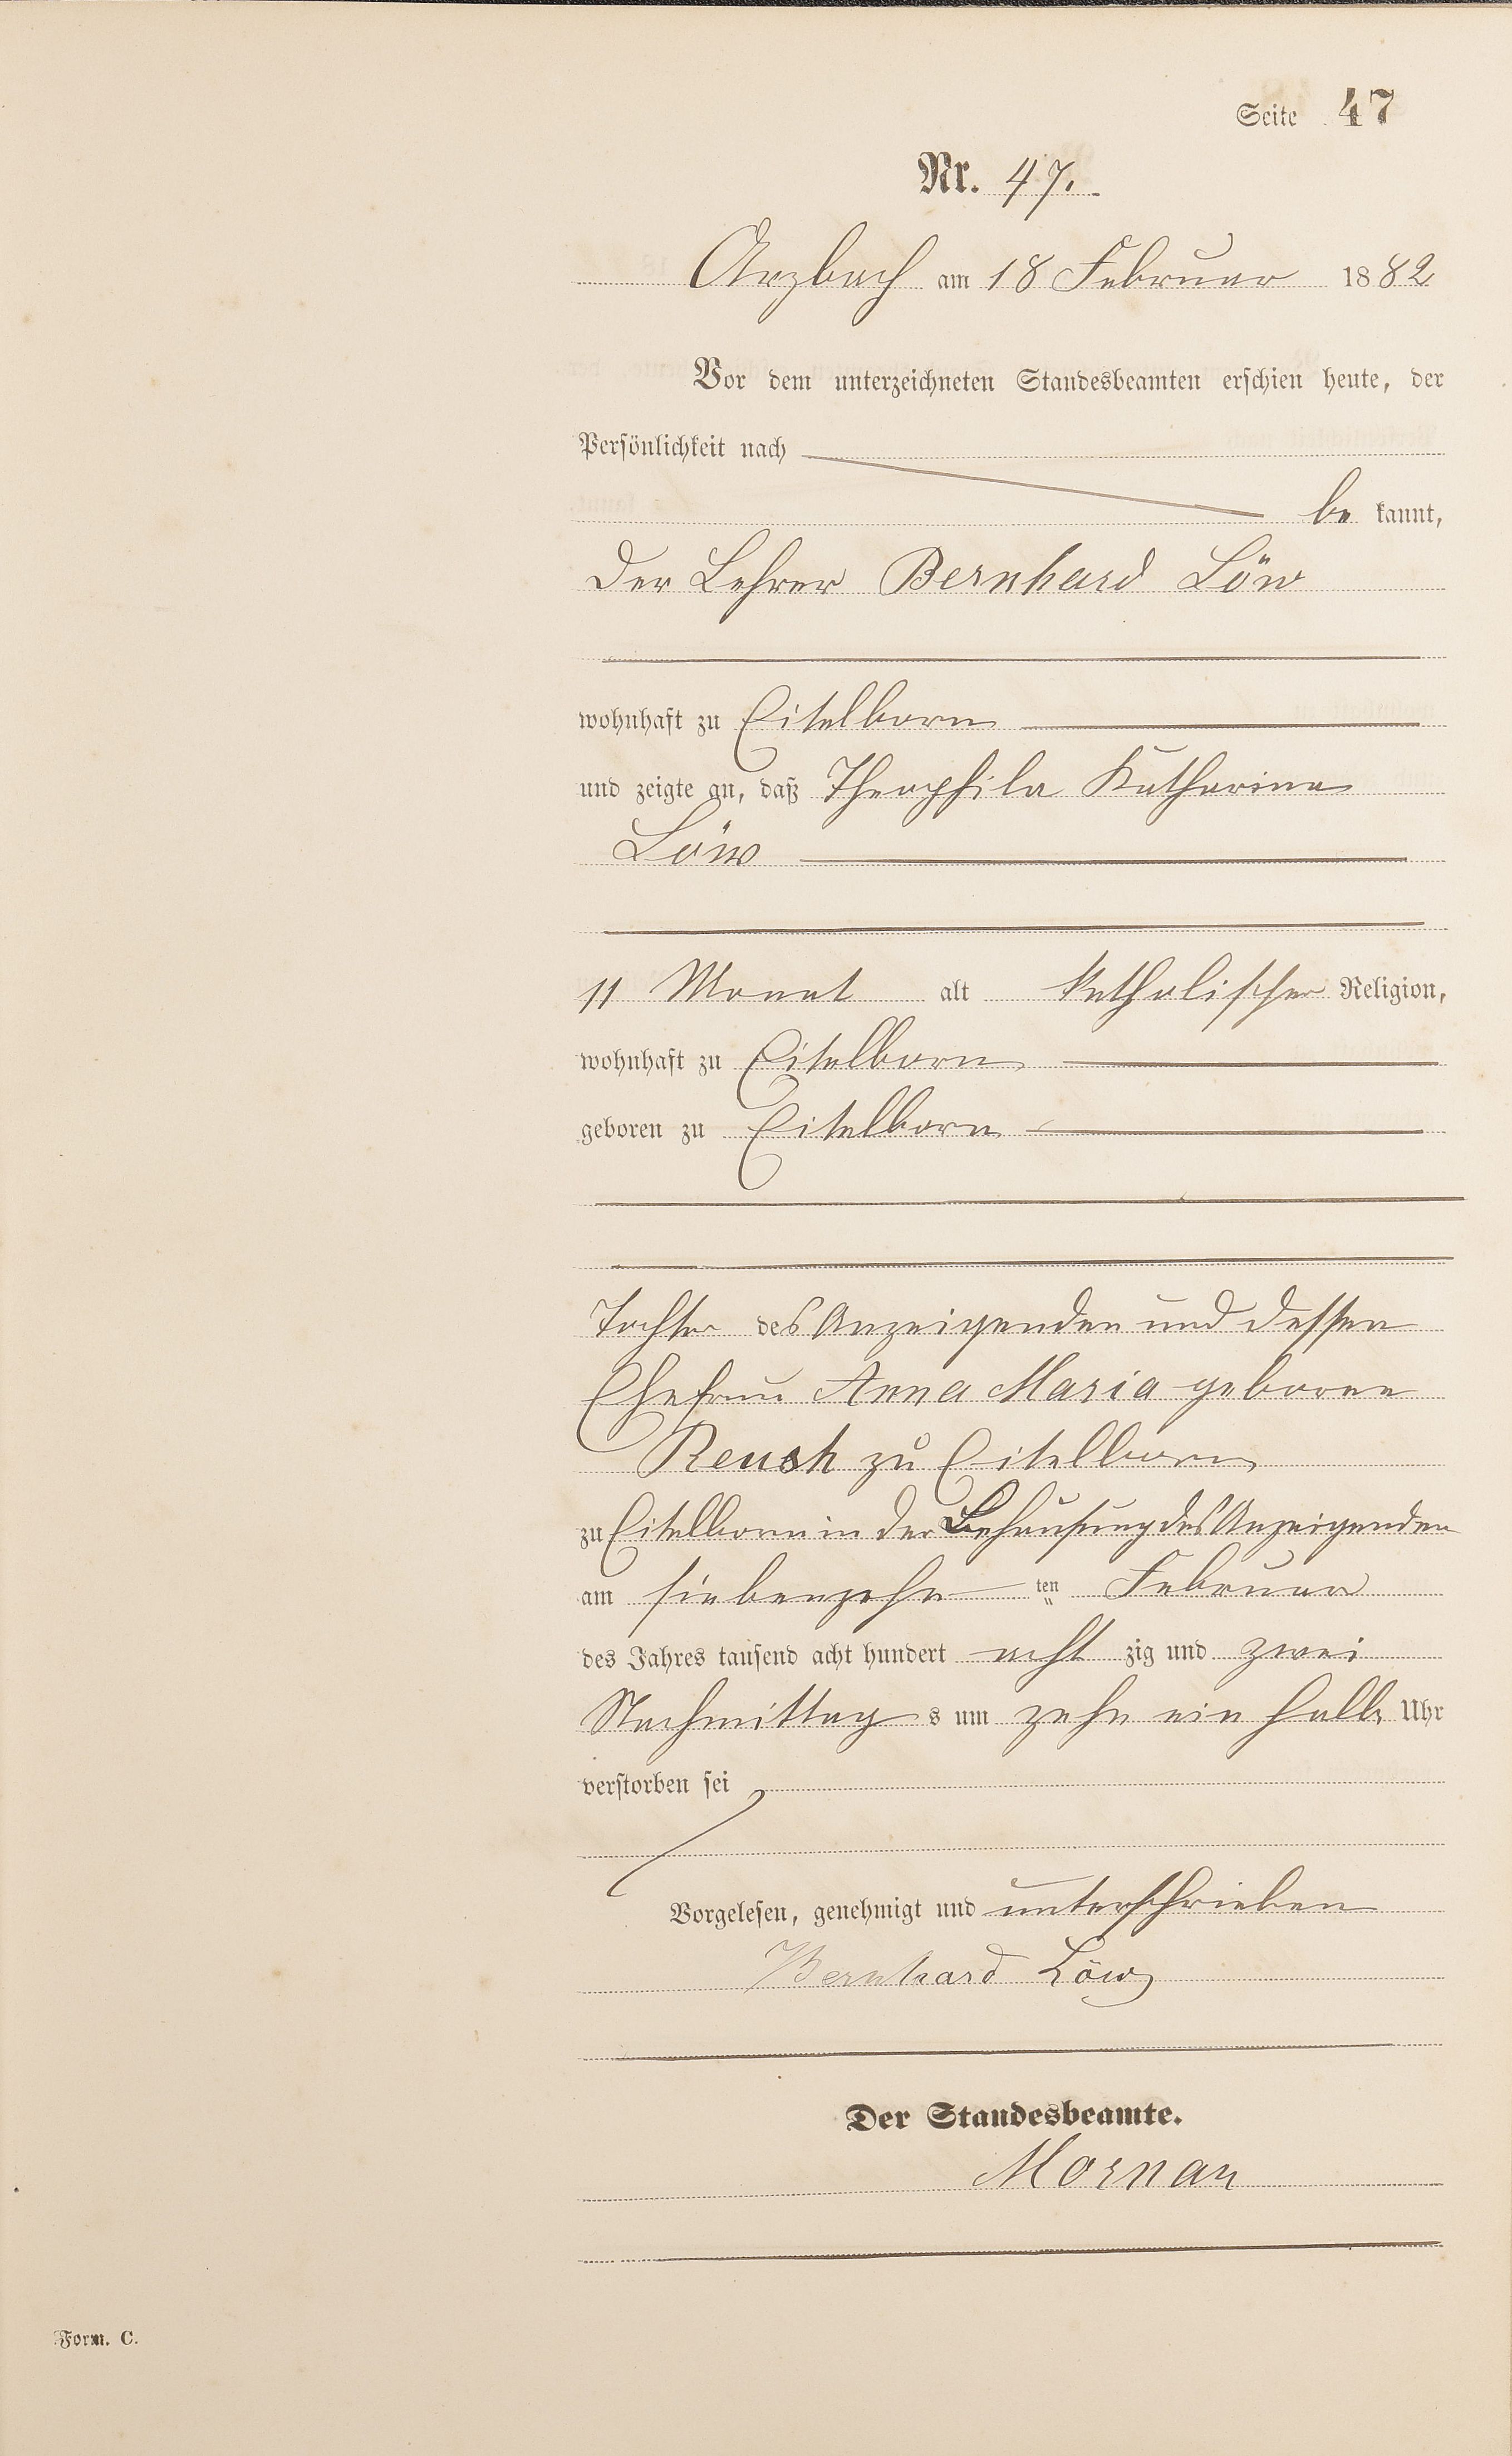 Seite 47
Nr. 47.
Arzbach am 18 Februar 1882
Vor dem unterzeichneten Standesbeamten erschien heute, der
Persönlichkeit nach
be kannt,
der Lehrer Bernhard Löw
wohnhaft zu Eitelborn
und zeigte an, daß Theophila Katharina
Löw
11 Monat alt katholischer Religion,
wohnhaft zu Eitelborn
geboren zu Eitelborn
Tochter des Anzeigenden und dessen
Ehefrau Anna Maria geborne
Reusch zu Eitelborn
zu Eitelborn in der Behausung des Anzeigenden
am siebenzehn ten Februar
des Jahres tausend acht hundert acht zig und zwei
Nachmittag s um zehn ein halb Uhr
verstorben sei
Vorgelesen, genehmigt und unterschrieben
Bernhard Löw
Der Standesbeamte.
Form. C.